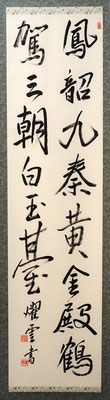 鳳韶九奏黃金殿鶴
駕三朝白玉臺
燿雲書